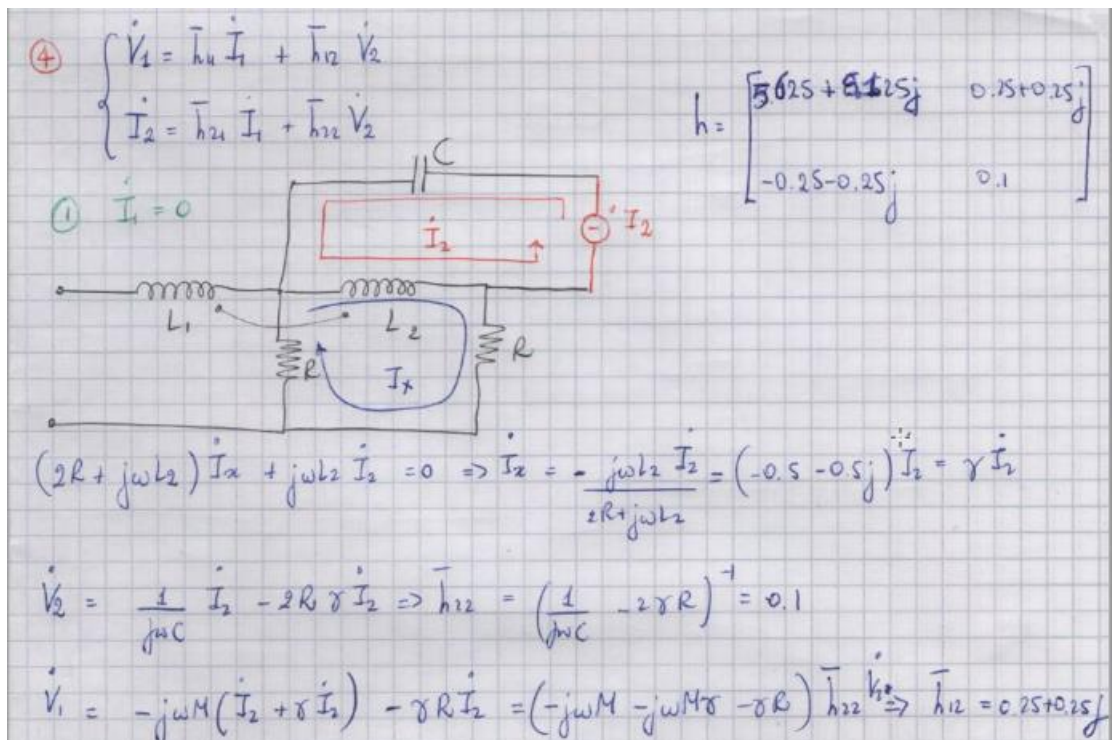 ④ { V̇₁ = h̄₁₁ İ₁ + h̄₁₂ V̇₂
İ₂ = h̄₂₁ İ₁ + h̄₂₂ V̇₂
h = [ 5.625 + j 0.25+0.25j
-0.25-0.25j 0.1 ]
① İ₁ = 0
C
İ₂
İ₂
L₁
L₂
R
R
Iₓ
(2R + jωL₂) İx + jωL₂ İ₂ = 0 => İx = - jωL₂ İ₂ / (2R+jωL₂) = (-0.5 -0.5j) İ₂ = γ İ₂
V̇₂ = 1/(jωC) İ₂ - 2R γ İ₂ => h̄₂₂ = (1/(jωC) - 2γR)⁻¹ = 0.1
V̇₁ = -jωM (İ₂ + γ İ₂) - γR İ₂ = (-jωM - jωMγ - γR) h̄₂₂ V̇₂ => h̄₁₂ = 0.25+0.25j